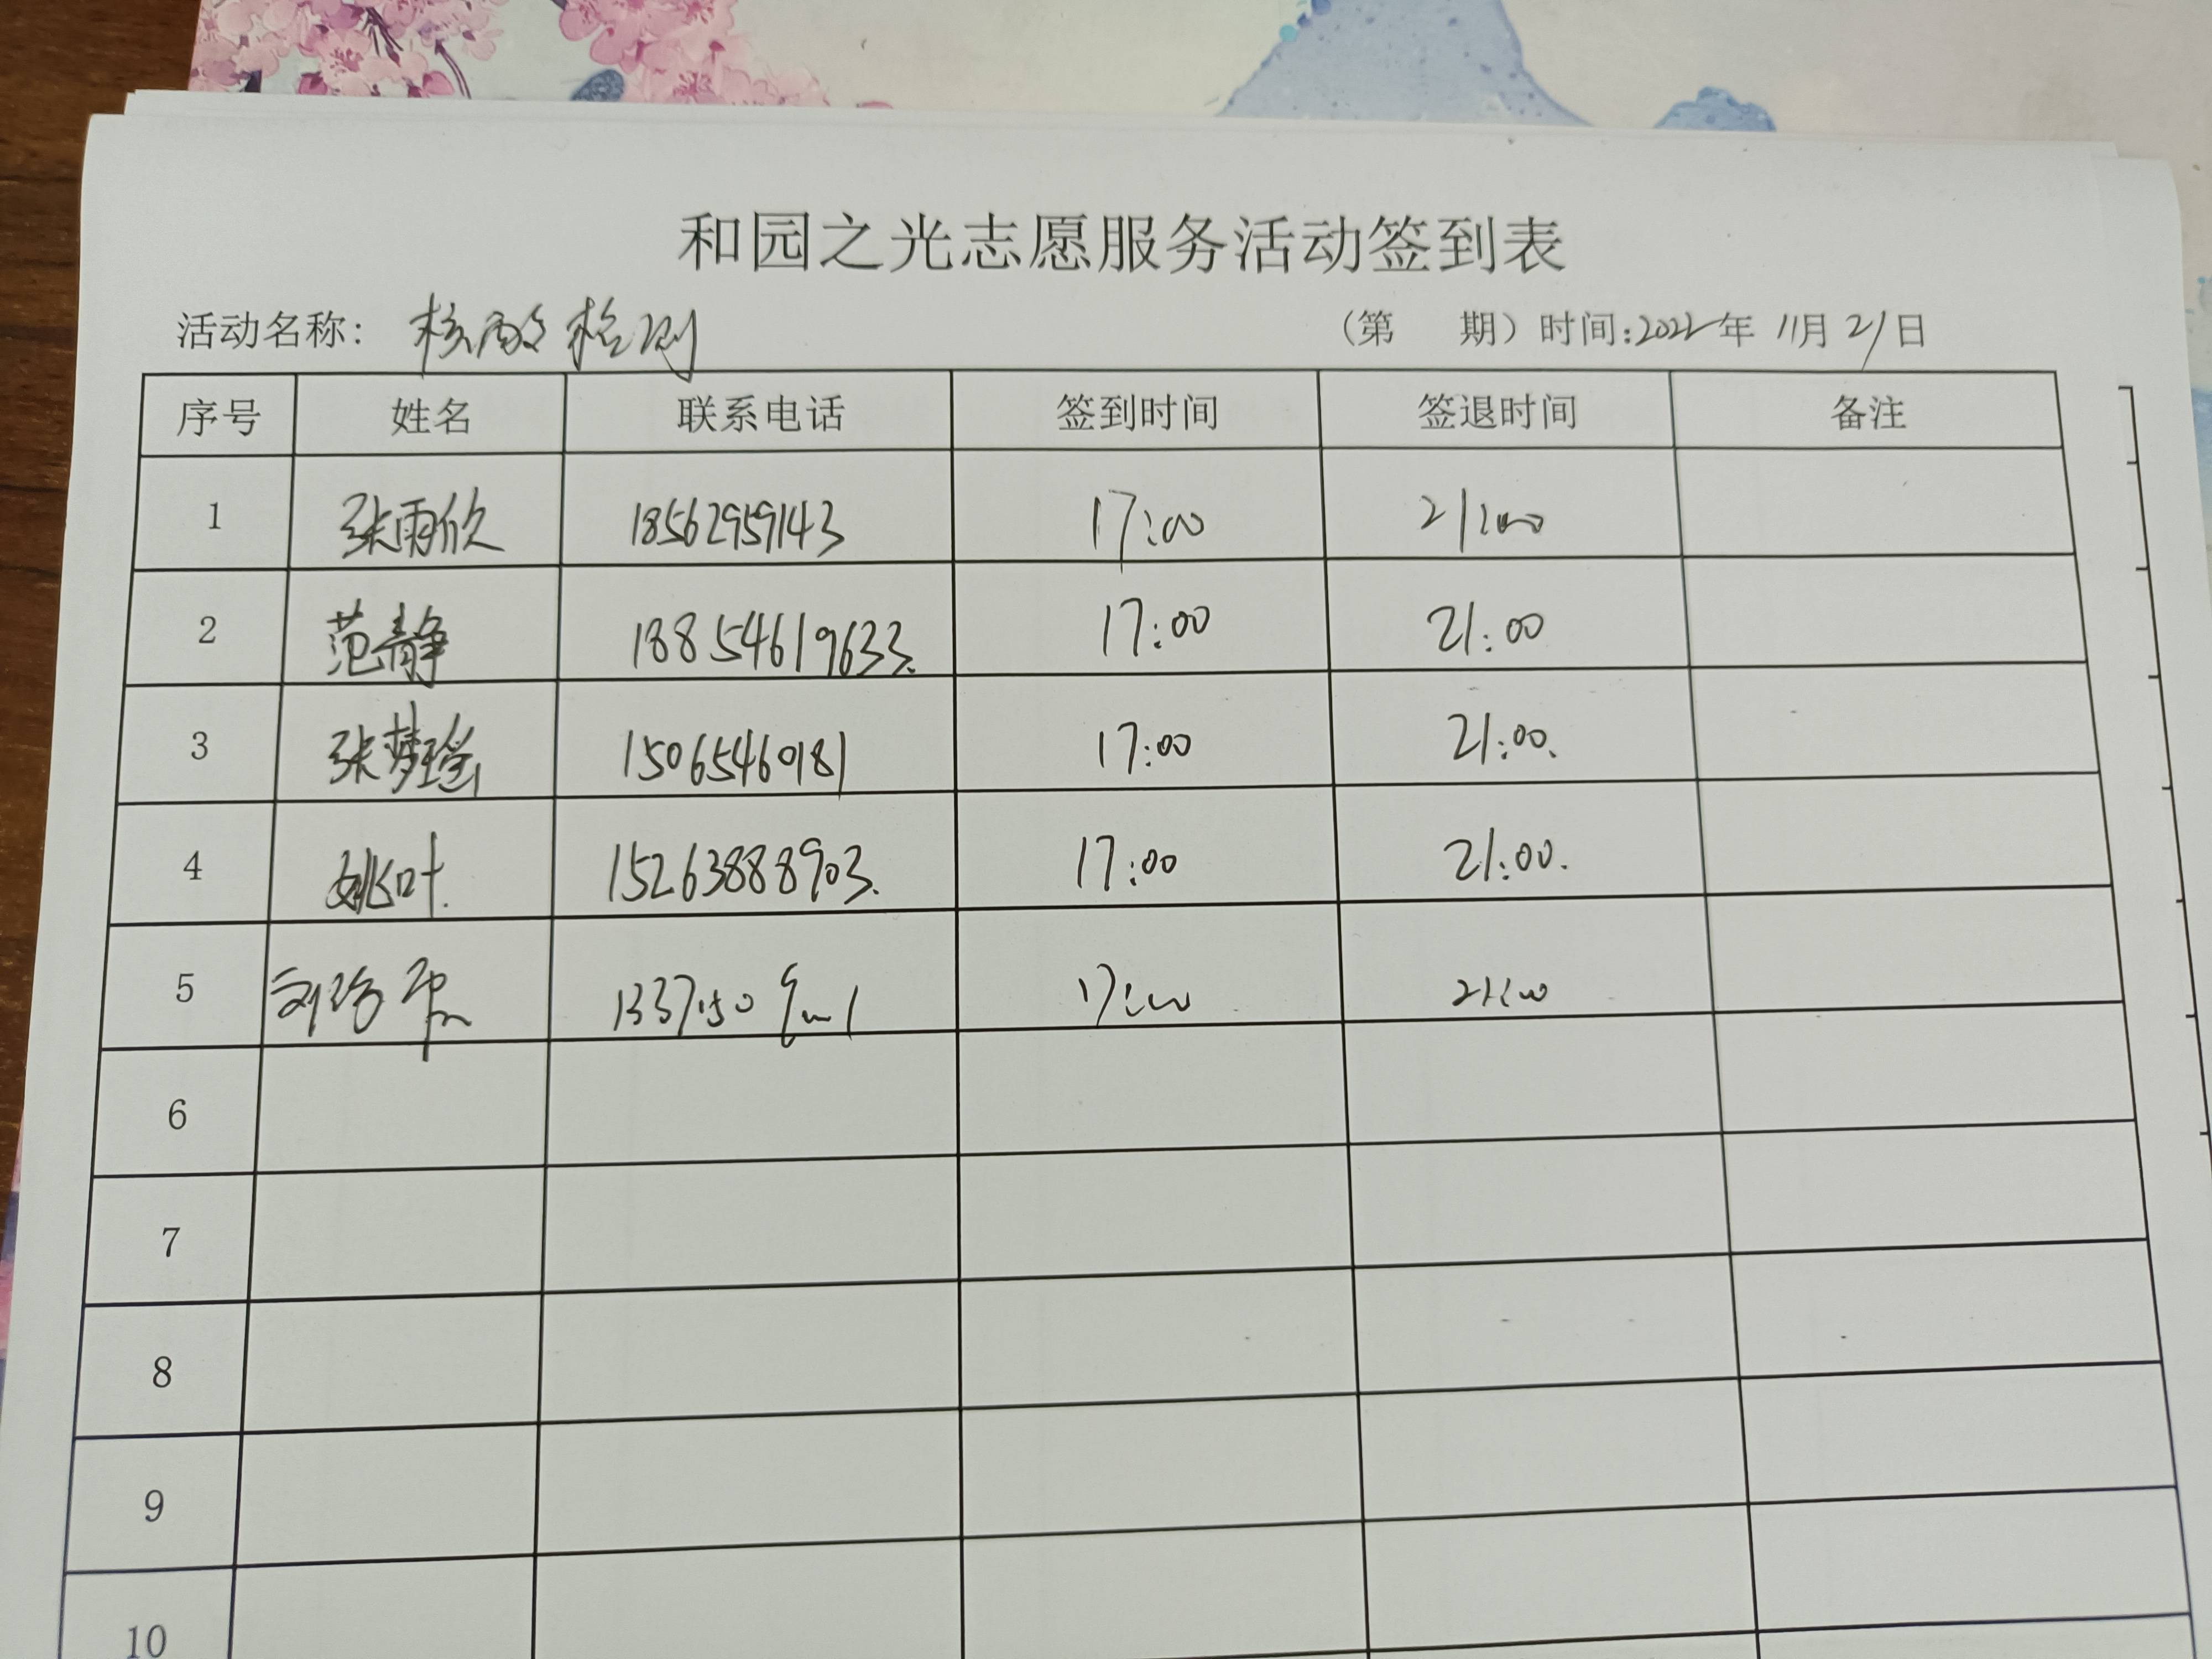 和园之光志愿服务活动签到表
活动名称: 核酸检测 (第 期) 时间:2022年 11月 21日
序号 姓名 联系电话 签到时间 签退时间 备注
1 张雨欣 18562959143 17:00 21:00
2 范静静 18854619633. 17:00 21:00
3 张梦瑶 15065460181 17:00 21:00.
4 姚叶. 15263888903. 17:00 21:00.
5 17:00 21:00
6
7
8
9
10